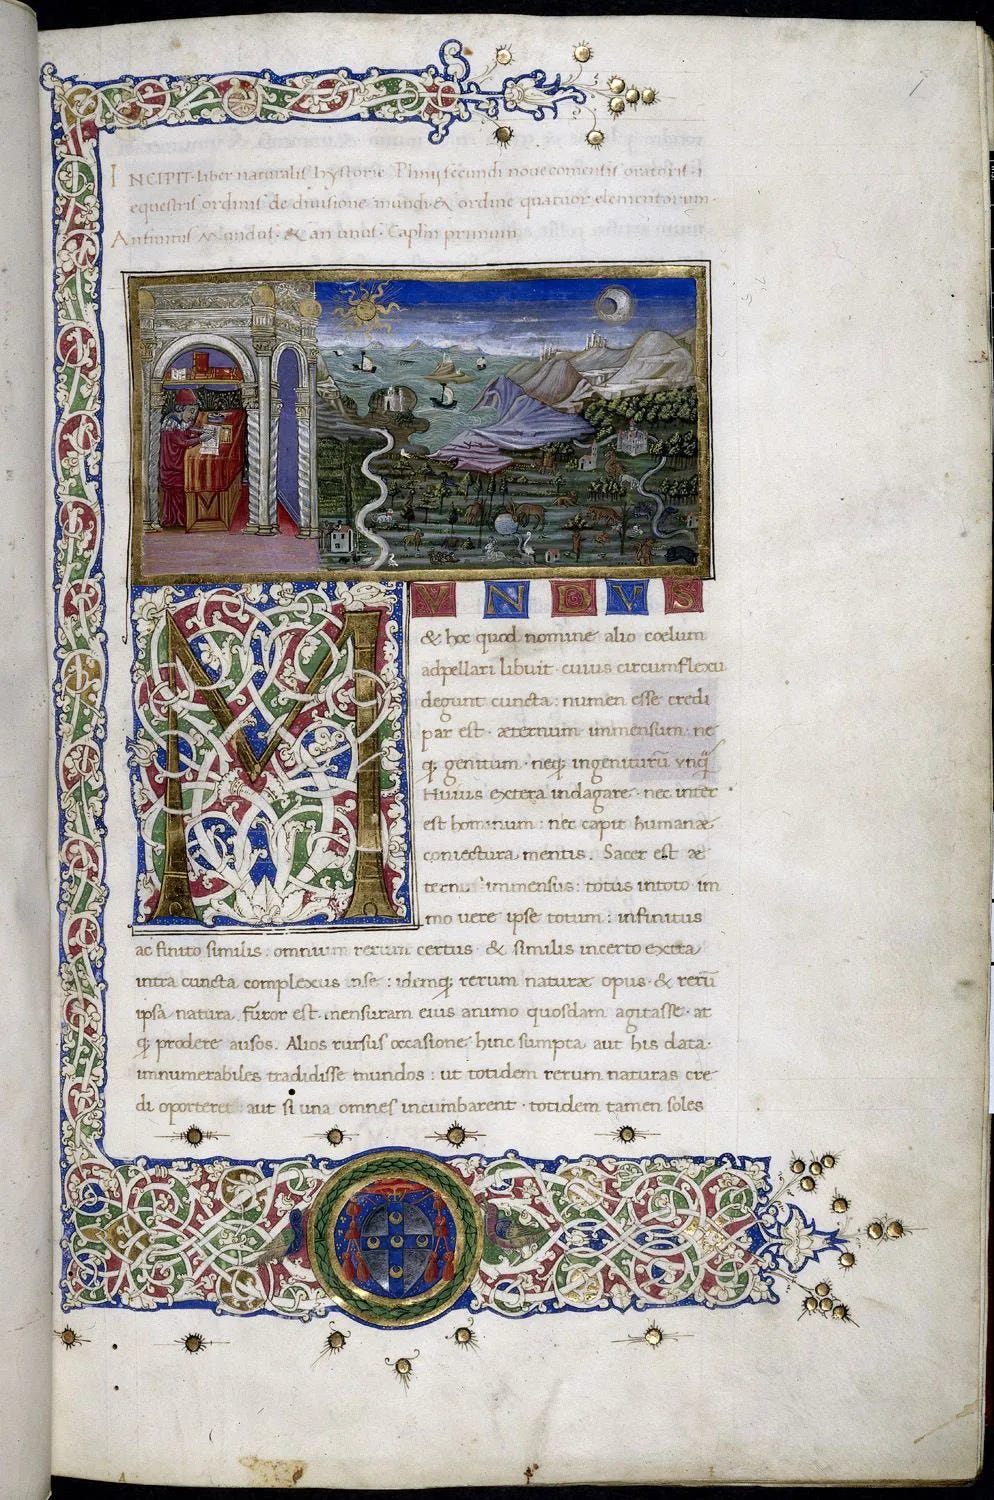 INCIPIT liber naturalis hystorie Plinij secundi novocomensis oratoris i
equestris ordinis de diuisione mundi & ordine quatuor elementorum.
An finitus Mundus. & an unus. Caplm primum
MVNDVS
& hoc quod nomine alio coelum
adpellari libuit. cuius circumflexu
degunt cuncta: numen esse credi
par est. æternum immensum. ne
q; genitum. neq; ingeniturū vnq̄
Huius extera indagare. nec inter
est hominum: nec capit humanæ
coniectura mentis. Sacer est æ
ternus immensus: totus intoto im
mo vere ipse totum: infinitus
ac finito similis: omnium rerum certus. & similis incerto extra
intra cuncta complexus inse: idemq; rerum naturæ opus. & rerū
ipsa natura. furor est. mensuram eius animo quosdam agitasse. at
q; prodere ausos. Alios rursus occasione hinc sumpta aut his data.
innumerabiles tradidisse mundos: ut totidem rerum naturas cre
di oporteret aut si una omnes incumbarent. totidem tamen soles